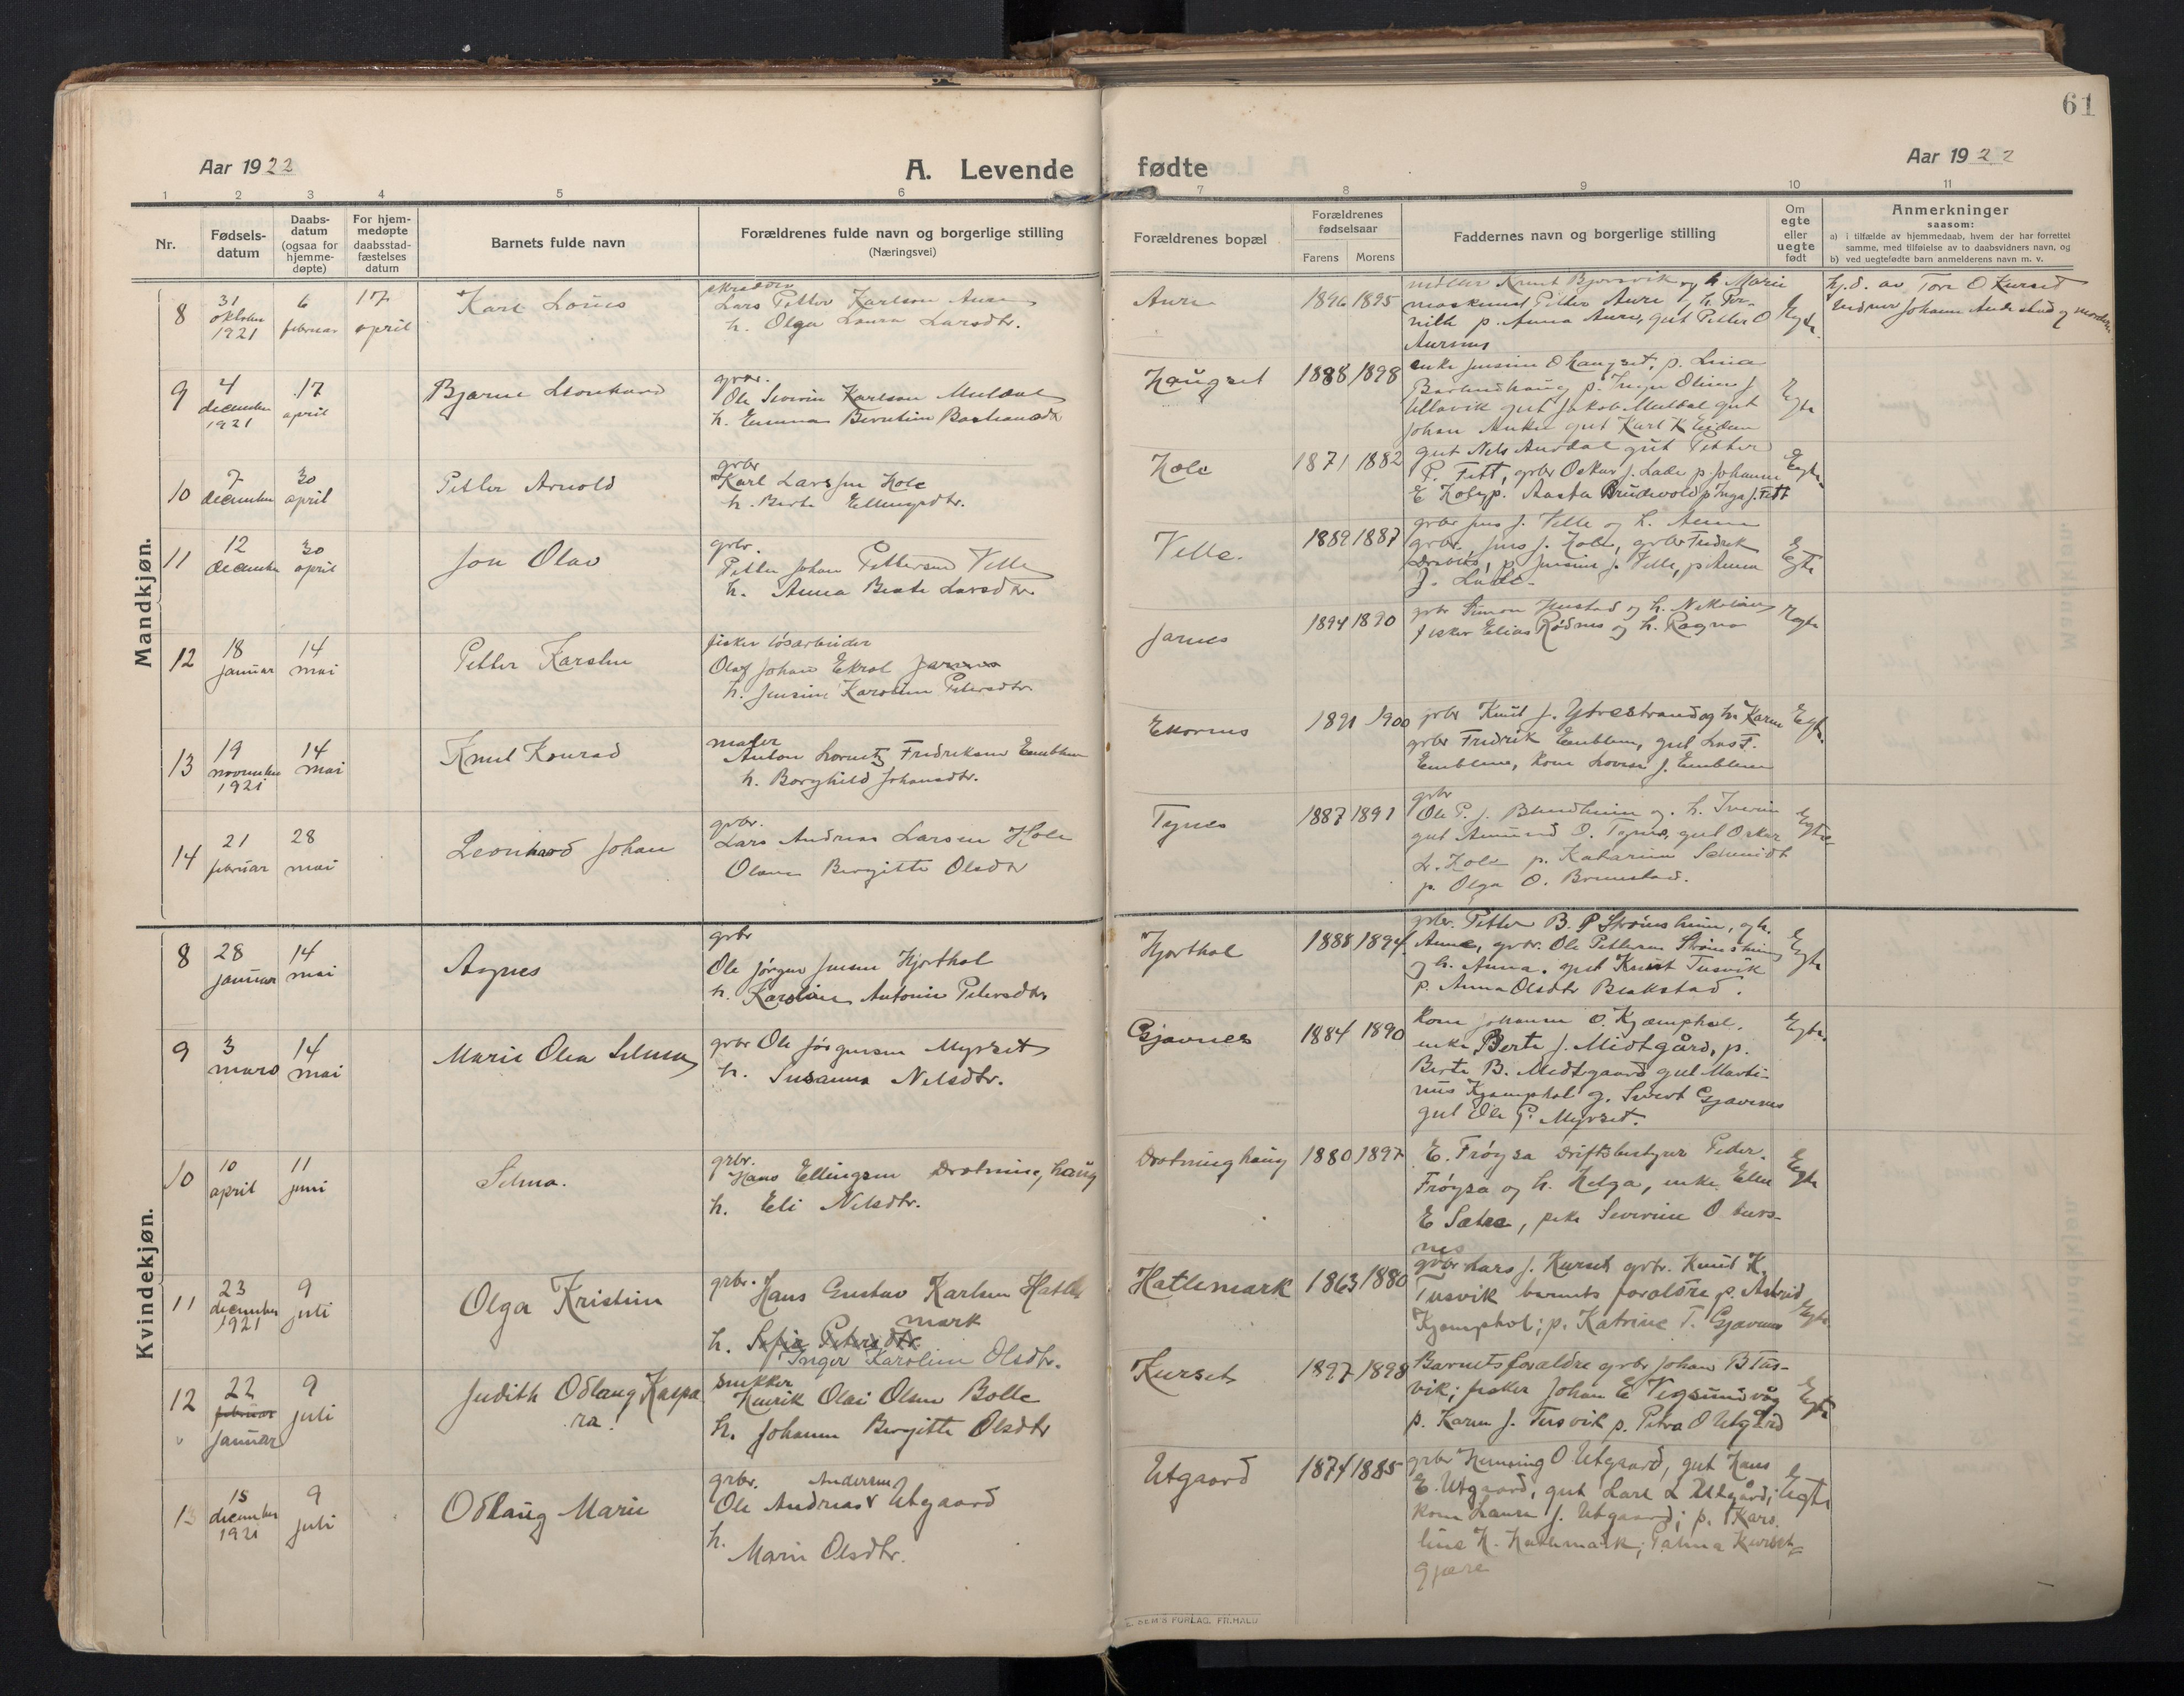 61
Aar 1922
A. Levende fødte
Aar 1922
1 2 3 4 5 6 7 8 9 10 11
Nr.
Fødsels-
datum
Daabs-
datum
(ogsaa for
hjemme-
døpte)
For hjem-
medøpte
daabsstad-
fæstelses
datum
Barnets fulde navn
Forældrenes fulde navn og borgerlige stilling
(Næringsvei)
Forældrenes bopæl
Forældrenes
fødselsaar
Farens Morens
Faddernes navn og borgerlige stilling
Om
egte
eller
uegte
født
Anmerkninger
saasom:
a) i tilfælde av hjemmedaab, hvem der har forrettet
samme, med tilføielse av to daabsvidners navn, og
b) ved uegtefødte barn anmelderens navn m. v.
Mandkjøn.
8
31 oktober 1921
6 februar
17 april
Karl Louis
Lars Petter Karlsen Aure
h. Olga Laura Larsdtr.
Aure
1896 1895
Knut Bjørsvik og h. Marie
Petter Aure, h. Per-
nille p. Anna Aure, gut Petter O
Aursnes
Egte
hj.d. av Tore O Kurset
9
4 december 1921
17 april
Bjarne Leonhard
grbr.
Ole Severin Karlsen Muldal
h. Emma Berntine Bastiansdtr
Haugset
1888 1898
enke Jensine O Haugset, p. Lina
p. Inga Oline J.
Ullavik gut Jakob Muldal gut
Johan gut Karl K
Egte
10
7 december
30 april
Petter Arnold
grbr
Karl Larssen Hole
h. Berte Ellingsdtr.
Hole
1871 1882
gut Nils Ausdal gut Petter
P. Fett, grbr Oskar J. Lade p. Johanne
E Hole, p. Aasta Brudevold p Inga J. Fett
Egte
11
12 december
30 april
Jon Olav
grbr.
Petter Johan Pettersen Velle
h. Anna Beate Larsdtr.
Velle.
1889 1887
grbr Jens J. Velle og h. Anna
grbr. Jens J. Hole, grbr Fredrik
p. Jensine J. Velle, p Anna
J. Lade.
Egte
12
18 januar
14 mai
Petter Karsten
fisker løsarbeider
Olaf Johan Ekrol Jarnes
h. Jensine Karoline Petersdtr.
Jarnes
1894 1890
grbr Simon Hustad og h. Nikoline
fisker Elias Rødnes og h. Ragna
Egte
13
19 november 1921
14 mai
Knut Konrad
maler
Anton Lorentz Fredriksen Emblem
h. Borghild Johansdtr.
Ekornes
1891 1900
grbr Knut J. Ytrestrand og h. Karen
grbr Fredrik Emblem, gut Lars F.
Emblem, kone Lovise J. Emblem
Egte
14
21 februar
28 mai
Leonhard Johan
grbr.
Lars Andreas Larsen Hole
Olava Bergitte Olsdtr
Tynes
1887 1891
grbr
Ole P. J. Blindheim og h. Iverine
gut Amund O. Tynes, gut Oskar
L. Hole p. Katarina Schmidt
p. Olga O. Brunstad.
Egte
Kvindekjøn.
8
28 januar
14 mai
Agnes
grbr
Ole Jørgen Jensen Hjorthol
h. Karoline Antonie Petersdtr
Hjorthol
1888 1894.
grbr. Petter B. P Strømsheim, og h.
Anne, grbr. Ole Pettersen Strømsheim
og h. Anna. gut Knut Tusvik
p. Anna Olsdtr Brakstad.
Egte
9
3 mars
14 mai
Marie Olea Selma
grbr Ole Jørgensen Myrset
h. Susanna Nelsdtr.
Gjævenes
1884 1890
Kone Johanne O. Kjæmphol,
enke Berte J. Midtgård, p.
Berte B. Midtgaard gut Marti-
nus Kjæmphol og. Sivert Gjævenes
gut Ole P. Myrset.
Egte.
10
10 april
11 juni
Selma.
grbr.
Hans Ellingsen Drotninghaug
h. Eli Nilsdtr.
Drotninghaug
1880 1897
E. Frøysa Driftsbestyrer Peder.
Frøysa og h. Helga, enke Ellen
E Sætre, pike Severine O Aurs-
nes
Egte
11
23 december 1921
9 juli
Olga Kristine
grbr. Hans Gustav Karlsen Hatle
mark
h. Sofie Petersdtr.
Inger Karoline Olsdtr.
Hatlemark
1863 1880
grbr Lars J. Kurset grbr. Knut K.
Tusvik barnets foraldre p. Astrid
Kjæmphol; p. Katrine T. Gjævenes
Egte.
12
22 februar januar
9 juli
Judith Odlaug Kaspa
ra!
snekker
Henrik Olai Olsen Bolle
h. Johanne Bergitte Olsdtr
Kurset
1897 1898
Barnets foraldre grbr Johan B Tus-
vik; fisker Johan E Vegsundvåg
p. Karen J. Tusvik p. Petra O Utgård
Egte
13
15 december 1921
9 juli
Odlaug Marie
grbr. Andersen
Ole Andreas Utgaard
h. Marie Olsdtr.
Utgaard
1874 1885
grbr Henning O Utgaard, gut Hans
E. Utgaard, gut Karl L Utgård;
kone Laura J. Utgaard; p. Karo-
line H. Hatlemark; Palma Kurset-
gjære
Egte
E. SEM'S FORLAG. FR.HALD